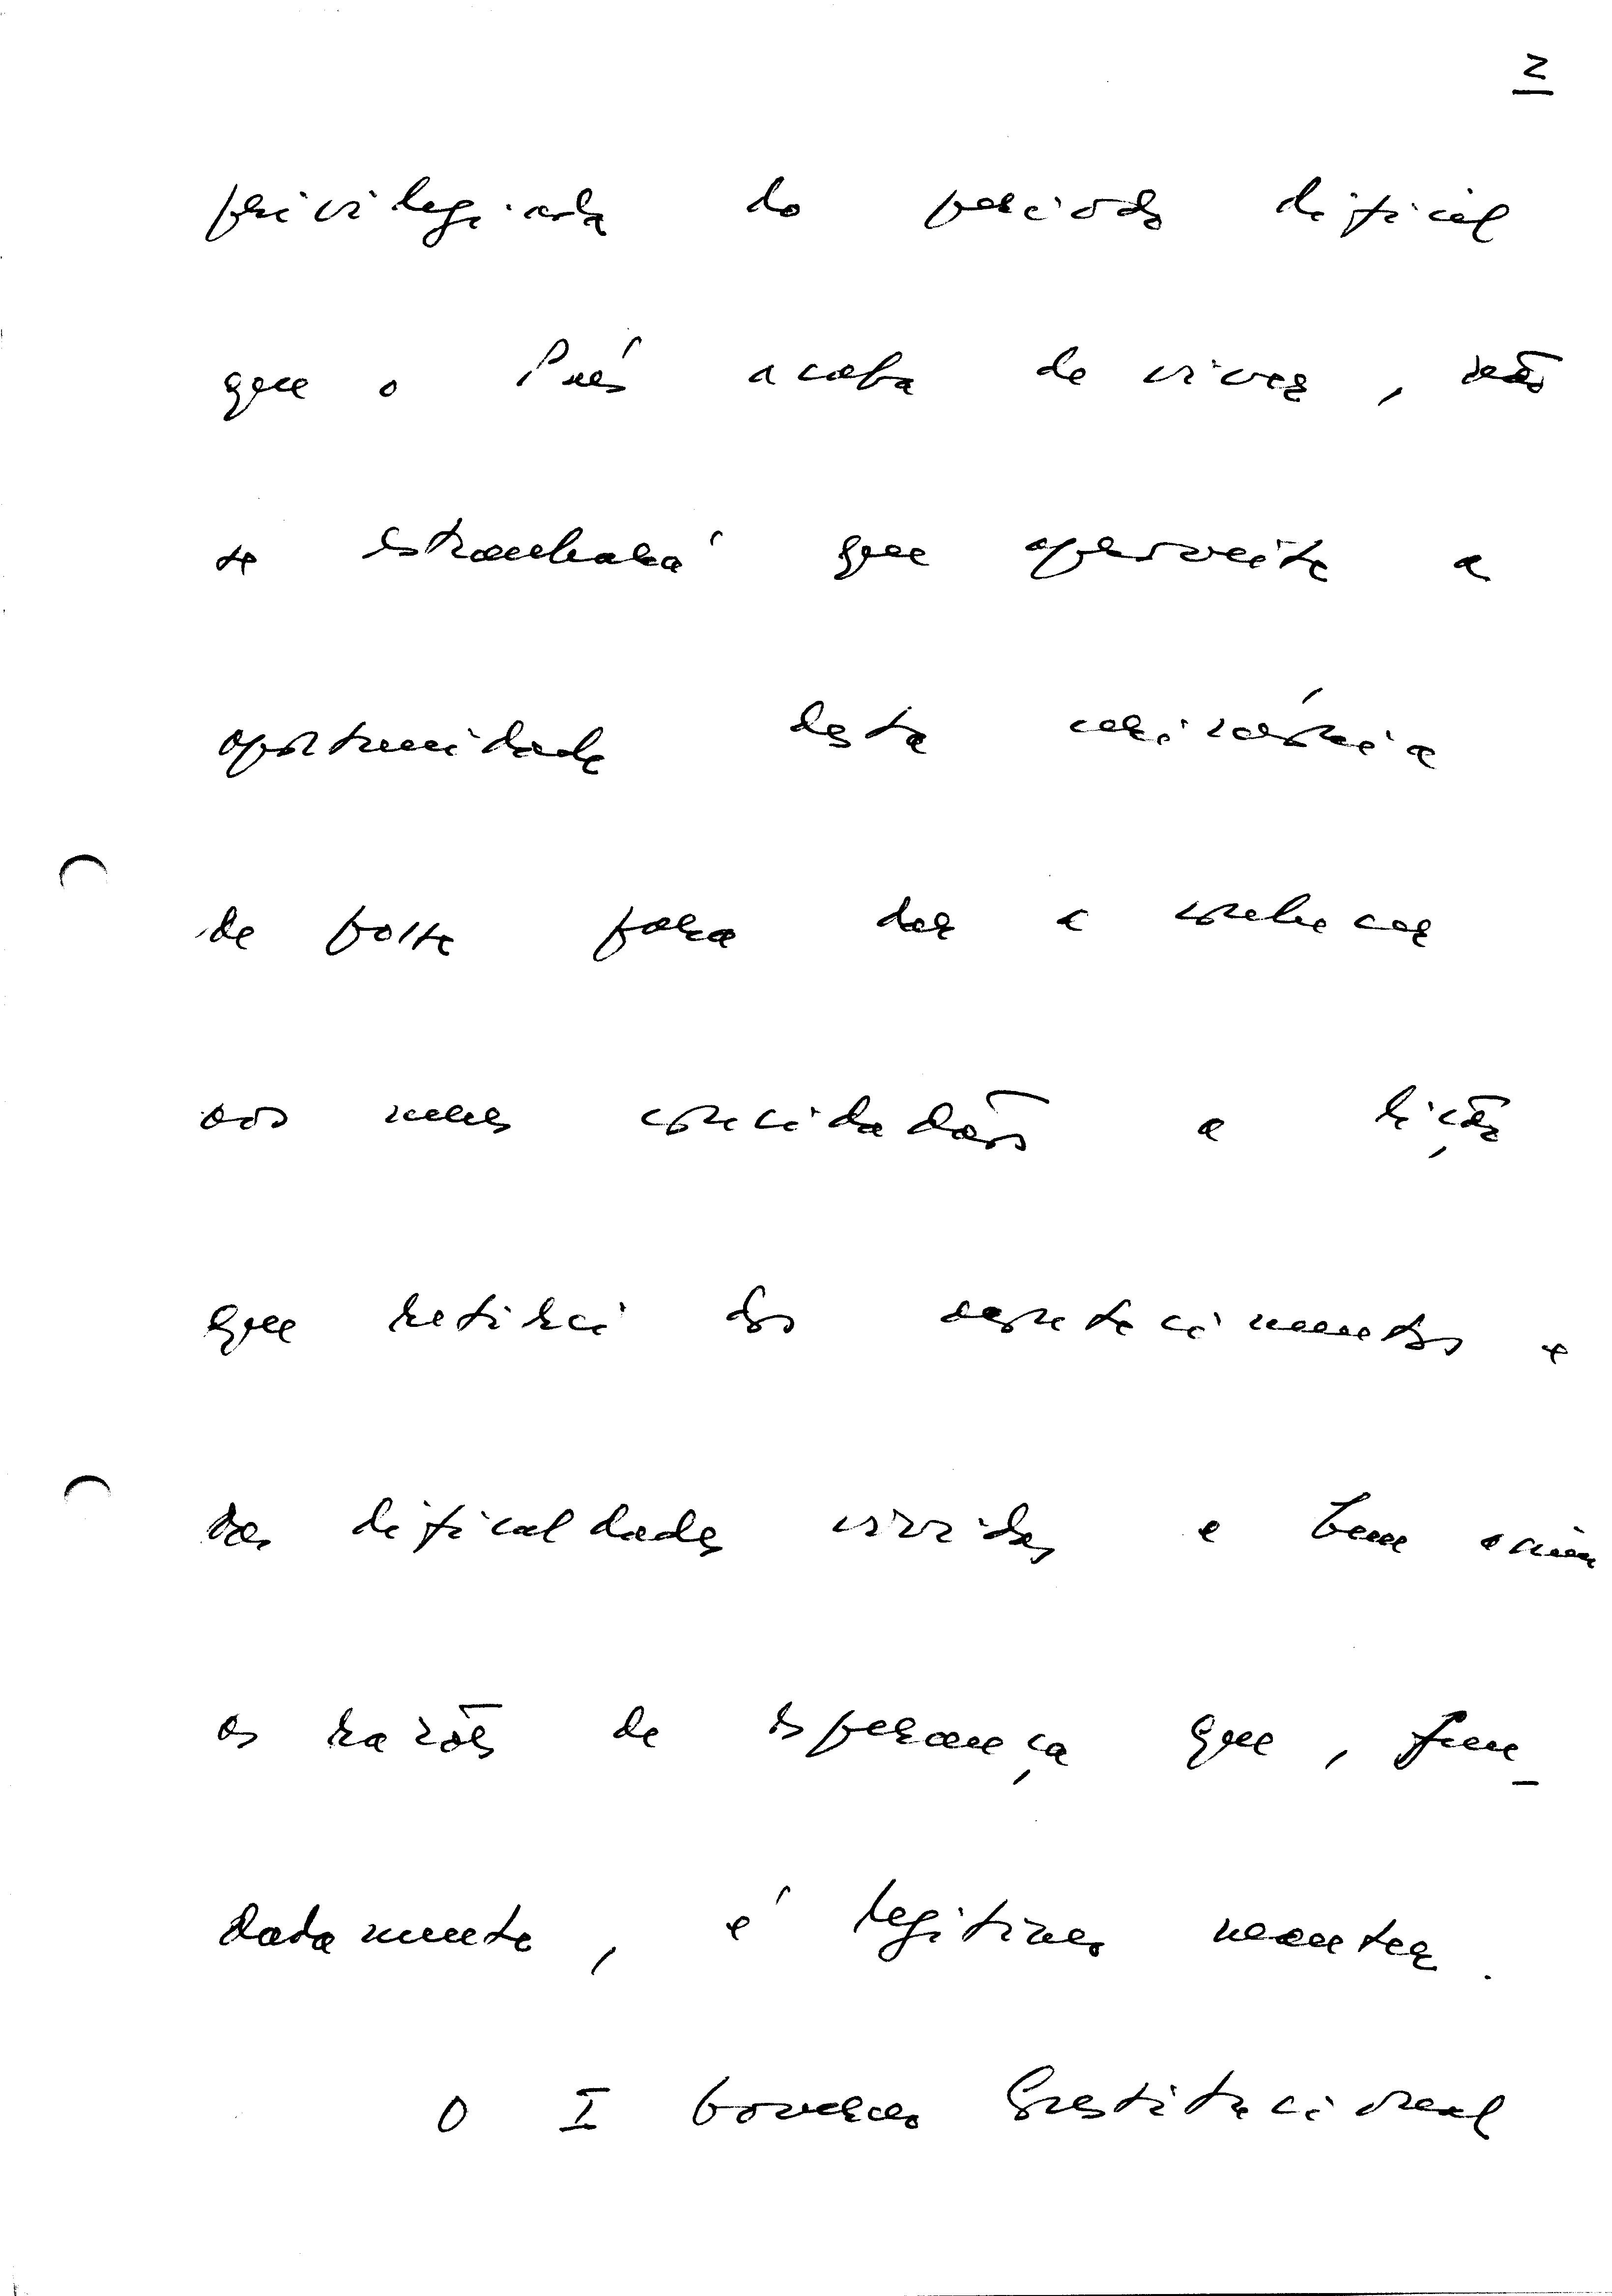 2
privilegiada do período difícil
que o País acaba de viver, não
se estranhará que aproveite a
oportunidade desta cerimónia
de posse para dar a conhecer
aos meus concidadãos a lição
que retirei dos acontecimentos e
das dificuldades vividas e bem assim
as razões de esperança que, fun_
dadamente, é legítimo manter.
O I Governo Constitucional